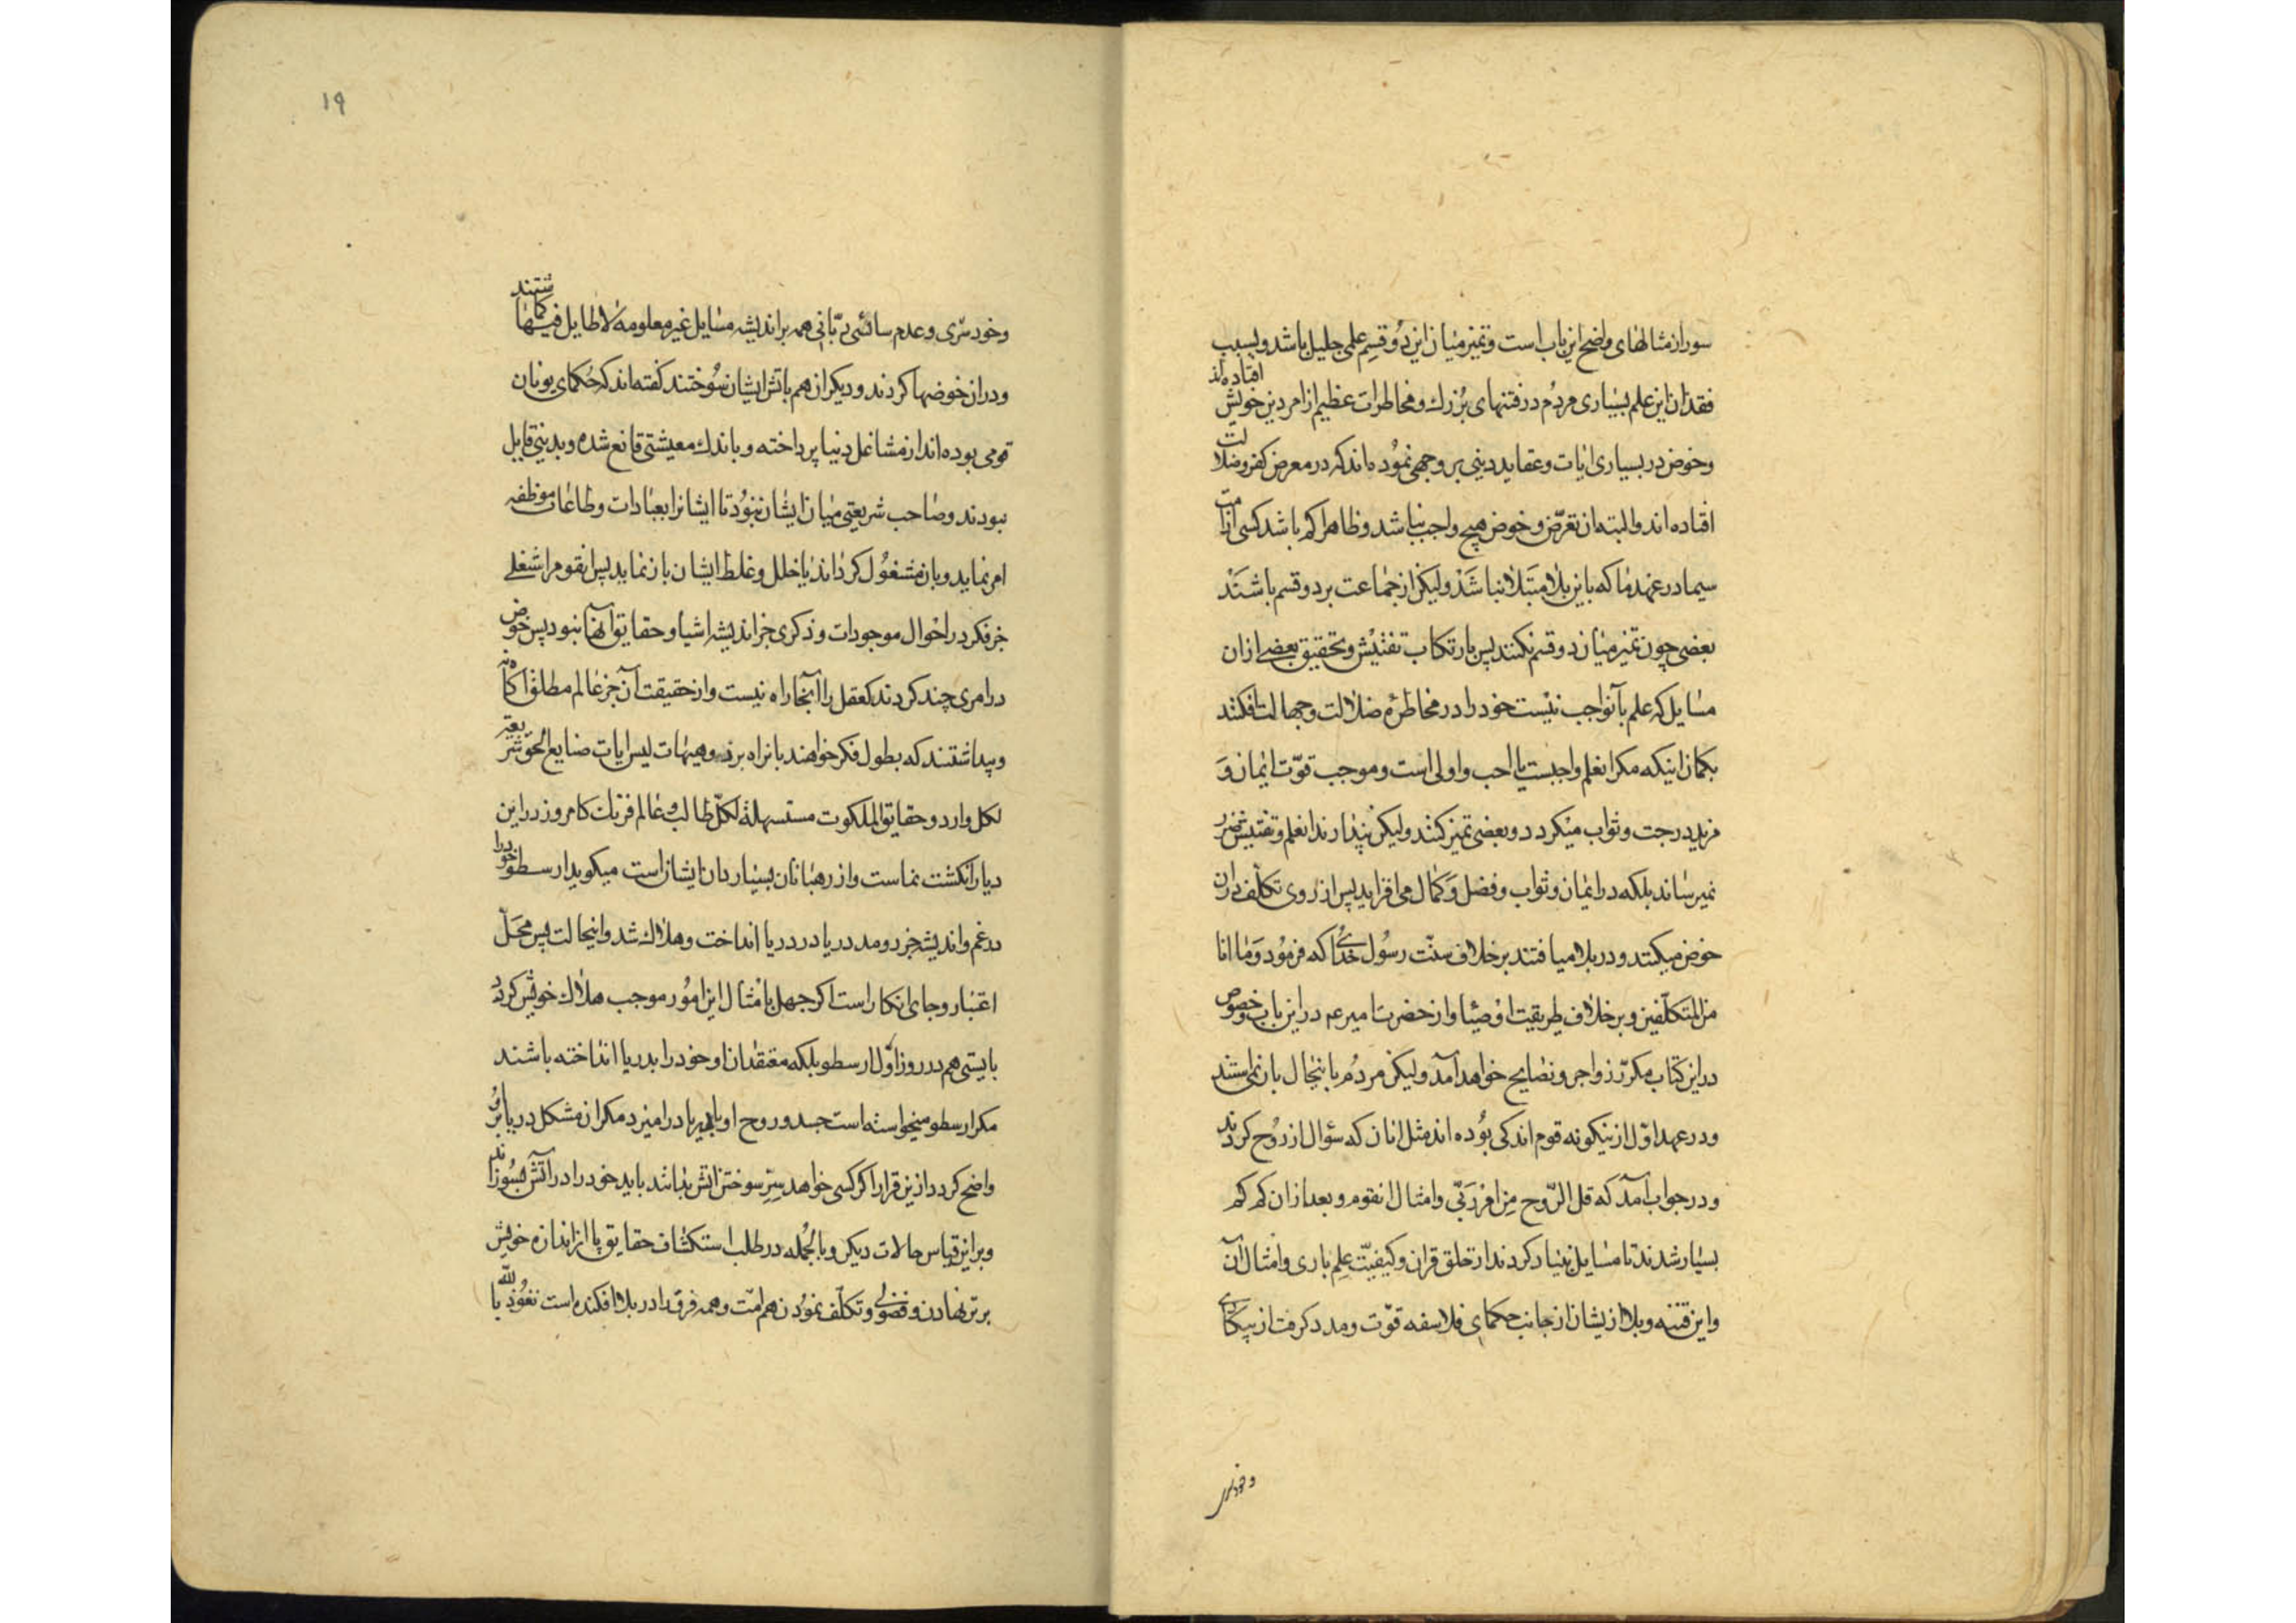 سور از مثالهای واضح این باب است و تمیز میان این دو قسم علمی جلیل باشد و بسبب
فقدان این علم بسیاری مردم در فتنهای بزرك و مخاطرات عظیم از امر دین خویش افتاده‌اند
و خوض در بسیاری ایات و عقاید دینی بر وجهی نموده‌اند که در معرض کفر و ضلالت
افتاده اند و البته ان تعرّض و خوض هیچ واجب نباشد و ظاهرا کم باشد کسی از امت
سیما در عهد ما که باین بلا مبتلا نباشد ولیکن از جماعت بر دو قسم باشند
بعضی چون تمیز میان دو قسم نکنند پس بارتکاب تفتیش و تحقیق بعضی ازان
مسایل که علم بآن واجب نیست خود را در مخاطرهٔ ضلالت و جهالت افکنند
بکمان اینکه مکر انعلم واجبست یا احب و اولی است و موجب قوّت ایمان و
مزید درجت و ثواب میکردد و بعضی تمیز کنند ولیکن پندارند انعلم و تفتیش ضرر
نمیرساند بلکه در ایمان و ثواب و فضل و کمال می افزاید پس از روی تکلّف دران
خوض میکنند و در بلا میافتند بر خلاف سنّت رسول خدای که فرمود و ما انا
من المتکلّفین و بر خلاف طریقت اوصیا و از حضرت امیر عم در این باب و خصوص
در این کتاب مکرّر زواجر و نصایح خواهد آمد ولیکن مردم با اینحال باز نمی‌ایستند
و در عهد اوّل از ینکونه قوم اندکی بوده اند مثل انان که سؤال از روح کردند
و در جواب آمد که قل الرّوح من امر ربّی و امثال انقوم و بعد ازان کم کم
بسیار شدند تا مسایل بنیاد کردند از خلق قران و کیفیّت علم باری و امثال آن
و این فتنه و بلا ازیشان از جانب حکمای فلاسفه قوّت و مدد کرفت از بیکاری
و خودسری
۱۹
و خودسری و عدم سائسی ربّانی همه بر اندیشه مسایل غیر معلومه لا طایل فیها کماشتند
و دران خوضها کردند و دیکران هم باتش ایشان سوختند کفته اند که حکمای یونان
قومی بوده اند از مشاغل دنیا پرداخته و باندك معیشتی قانع شده و بدینی قایل
نبودند و صاحب شریعتی میان ایشان نبود تا ایشانرا بعبادات و طاعات موظفه
امر نماید و بان مشغول کرداند یا خلل و غلط ایشان باز نماید پس انقوم را شغلی
جز فکر در احوال موجودات و ذکری جز اندیشه اشیا و حقایق آنها نبود پس خوض
در امری چند کردند که عقل را آنجا راه نیست و از حقیقت آن جز عالم مطلق آکاه نه
و پنداشتند که بطول فکر خواهند بانراه برد و هیهات لیس ایات صنایع الحق شریعة
لکل وارد و حقایق الملکوت مستسهلة لکلّ طالب و عالم فرنك کامروز در این
دیار انکشت نماست و از رهبانان بسیار دان ایشان است میکوید ارسطو خود را
در غم و اندیشه جزر و مد دریا در دریا انداخت و هلاك شد و اینحالت پس محلّ
اعتبار و جای انکار است اکر جهل بامثال این امور موجب هلاك خویش کردد
بایستی هم در روز اوّل ارسطو بلکه معتقدان او خود را بدریا انداخته باشند
مکر ارسطو میخواسته است جسد و روح او بدریا در امیزد مکر ان مشکل دریا بر او
واضح کردد ازین قرار اکر کسی خواهد سرّ سوختن اتش بداند باید خود را در آتش بسوزاند
و بر این قیاس حالات دیکر و بالجمله در طلب استکشاف حقایق پا از اندازه خویش
برتر نهادن و فضولی و تکلّف نمودن هم امّت و همه فرق را در بلا افکنده است نعوذ بالله